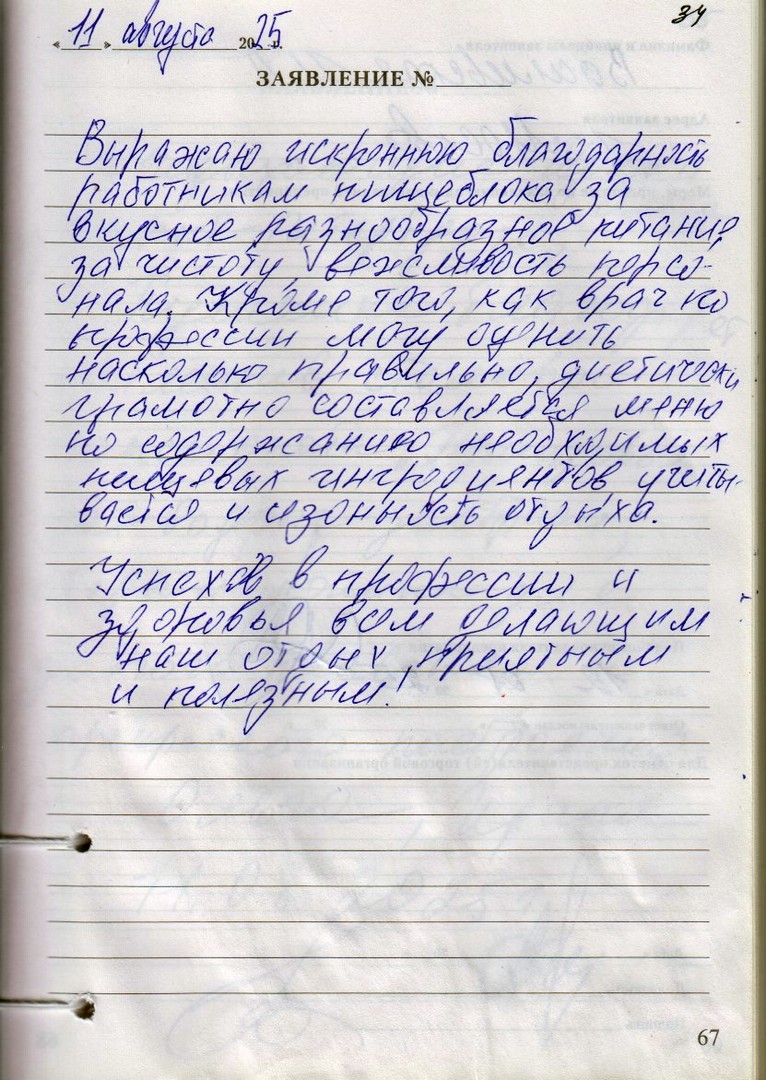 34
« 11 » августа 2025 г.
ЗАЯВЛЕНИЕ №
Выражаю искреннюю благодарность
работникам пищеблока за
вкусное разнообразное питание,
за чистоту, вежливость персо-
нала. Кроме того, как врач по
профессии могу оценить
насколько правильно, диетически
грамотно составляется меню
по содержанию необходимых
пищевых ингредиентов, учиты-
вается и сезонность отдыха.
Успехов в профессии и
здоровья вам делающим
наш отдых приятным
и полезным!
67